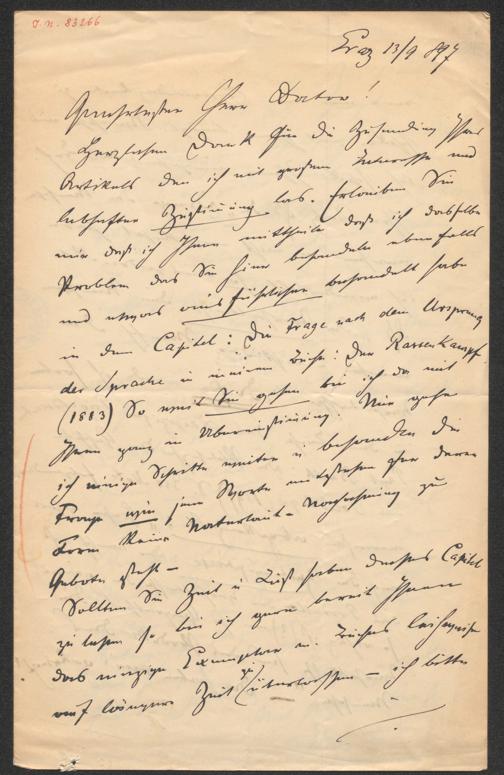 J.N. 83266
Graz 13/9 897
Geehrtester Herr Doctor!
Herzlichen Dank für die Zusendung Ihres
Artikels den ich mit großem Interesse und
lebhafter Zustimmung las. Erlauben Sie
mir daß ich Ihnen mittheile daß ich dasselbe
Problem das Sie hier behandeln ebenfalls
und etwas ausführlicher behandelt habe
in dem Capitel: Die Frage nach dem Ursprung
der Sprache in meinem Buche: Der Rassenkampf
(1883) So weit Sie gehen bin ich da mit
Ihnen ganz in Übereinstimmung. Nur gehe
ich einige Schritte weiter u behandle die
Frage wie jene Worte entstehen für deren
Form keine Naturlaut-Nachahmung zu
Gebote steht —
Sollten Sie Zeit u Lust haben dieses Capitel
zu lesen so bin ich gern bereit Ihnen
das einzige Exemplar m. Buches leihweise
auf längere Zeit zu überlassen — ich bitte